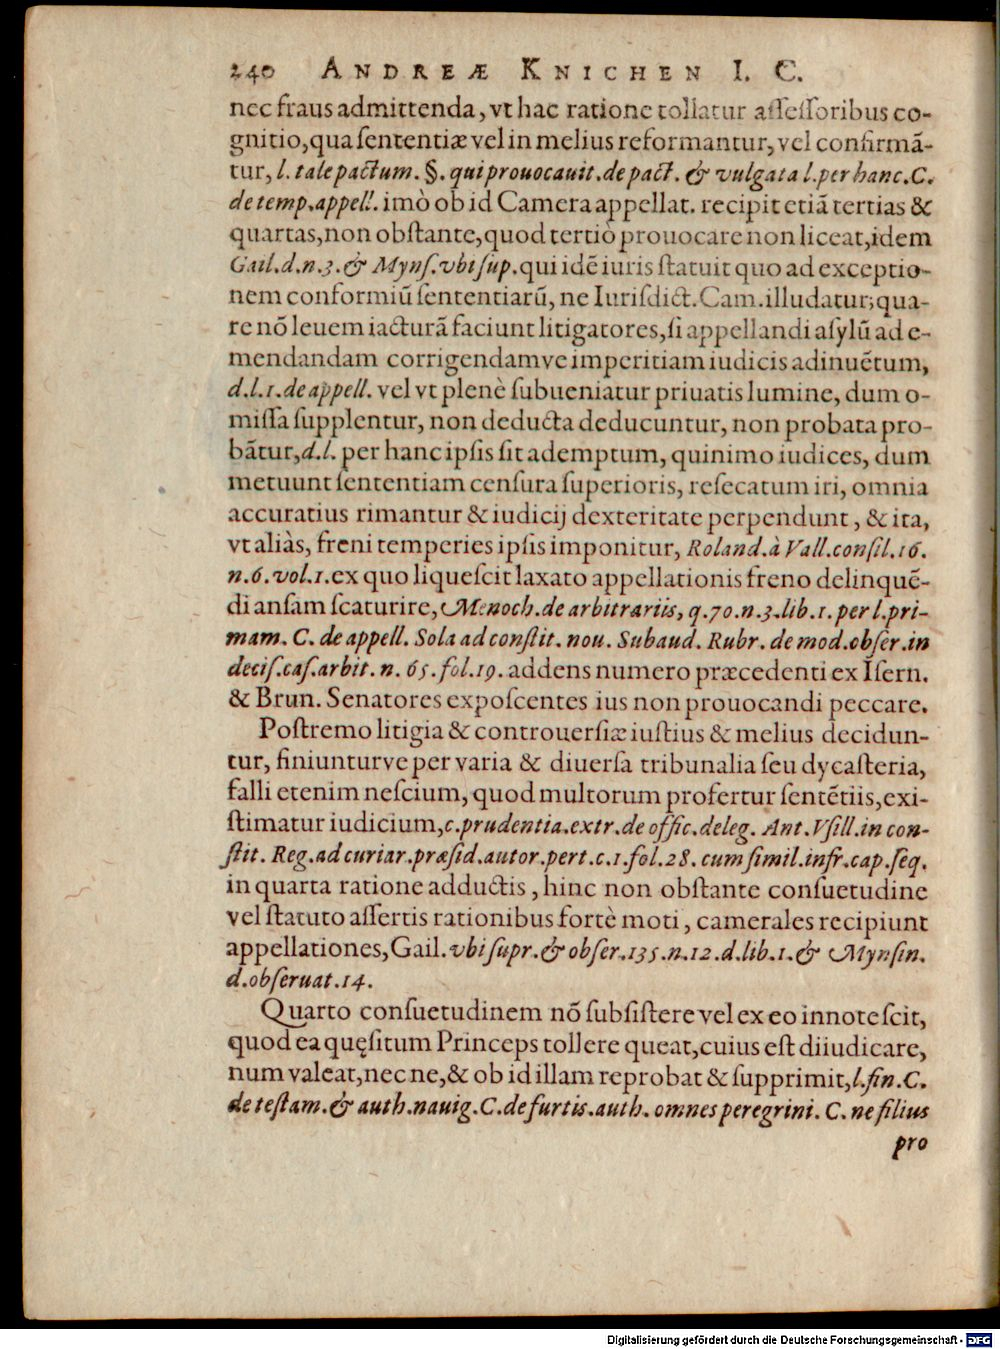 240 ANDREÆ KNICHEN I. C.
nec fraus admittenda, vt hac ratione tollatur aſſeſſoribus co-
gnitio, qua ſententiæ vel in melius reformantur, vel confirmã-
tur, l. tale pactum. §. qui prouocauit. de pact. & vulgata l. per hanc. C.
de temp. appell. imò ob id Camera appellat. recipit etiã tertias &
quartas, non obſtante, quod tertiò prouocare non liceat, idem
Gail. d. n. 3. & Mynſ. vbi ſup. qui idẽ iuris ſtatuit quo ad exceptio-
nem conformiũ ſententiarũ, ne Iuriſdict. Cam. illudatur; qua-
re nõ leuem iacturã faciunt litigatores, ſi appellandi aſylũ ad e-
mendandam corrigendamve imperitiam iudicis adinuẽtum,
d. l. 1. de appell. vel vt plenè ſubueniatur priuatis lumine, dum o-
miſſa ſupplentur, non deducta deducuntur, non probata pro-
bãtur, d. l. per hanc ipſis ſit ademptum, quinimo iudices, dum
metuunt ſententiam cenſura ſuperioris, reſecatum iri, omnia
accuratius rimantur & iudicij dexteritate perpendunt, & ita,
vt aliàs, freni temperies ipſis imponitur, Roland. à Vall. conſil. 16.
n. 6. vol. 1. ex quo liqueſcit laxato appellationis freno delinquẽ-
di anſam ſcaturire, Menoch. de arbitrariis, q. 70. n. 3. lib. 1. per l. pri-
mam. C. de appell. Sola ad conſtit. nou. Subaud. Rubr. de mod. obſer. in
deciſ. caſ. arbit. n. 65. fol. 19. addens numero præcedenti ex Iſern.
& Brun. Senatores expoſcentes ius non prouocandi peccare.
Poſtremo litigia & controuerſiæ iuſtius & melius decidun-
tur, finiunturve per varia & diuerſa tribunalia ſeu dycaſteria,
falli etenim neſcium, quod multorum profertur ſentẽtiis, exi-
ſtimatur iudicium, c. prudentia. extr. de offic. deleg. Ant. Vſill. in con-
ſtit. Reg. ad curiar. præſid. autor. pert. c. 1. fol. 28. cum ſimil. infr. cap. ſeq.
in quarta ratione adductis, hinc non obſtante conſuetudine
vel ſtatuto aſſertis rationibus fortè moti, camerales recipiunt
appellationes, Gail. vbi ſupr. & obſer. 135. n. 12. d. lib. 1. & Mynſin.
d. obſeruat. 14.
Quarto conſuetudinem nõ ſubſiſtere vel ex eo innoteſcit,
quod ea quęſitum Princeps tollere queat, cuius eſt diiudicare,
num valeat, nec ne, & ob id illam reprobat & ſupprimit, l. fin. C.
de teſtam. & auth. nauig. C. de furtis. auth. omnes peregrini. C. ne filius
pro
Digitalisierung gefördert durch die Deutsche Forschungsgemeinschaft - DFG